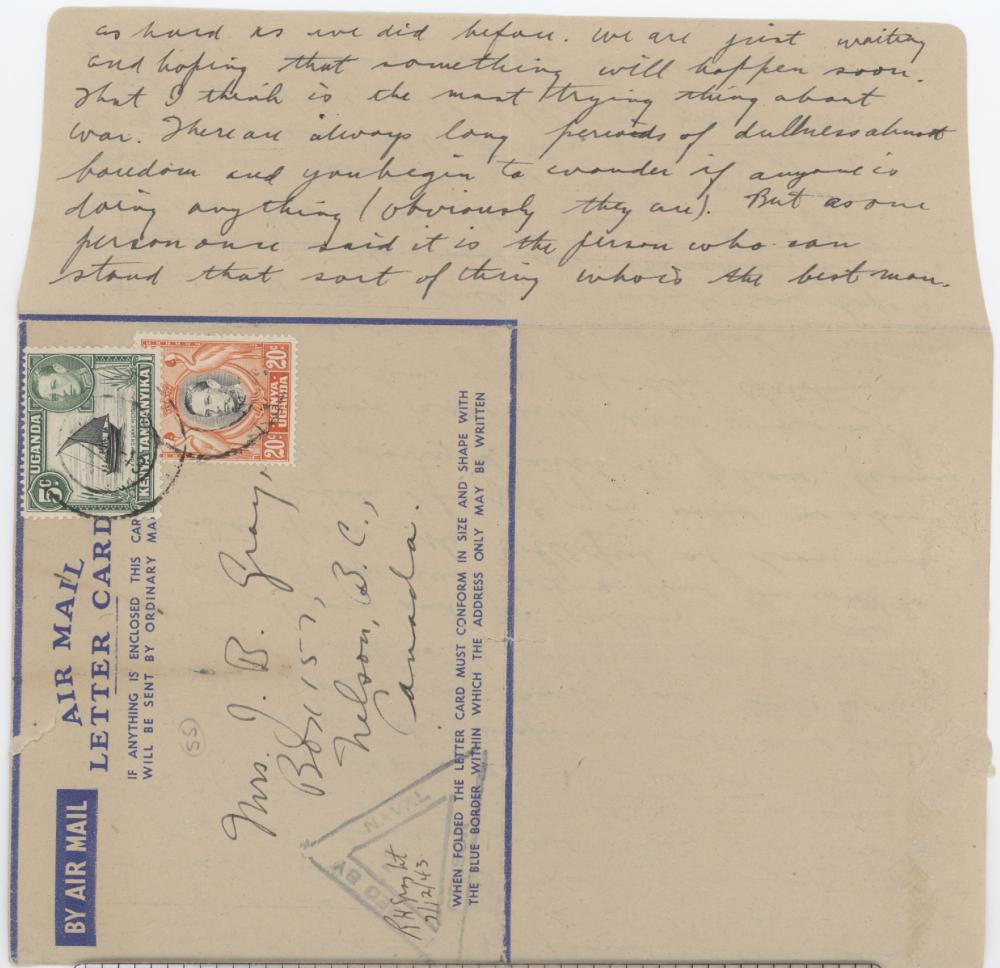 as hard as we did before. We are just waiting
and hoping that something will happen soon.
That I think is the most trying thing about
war. There are always long periods of dullness almost
boredom and you begin to wonder if anyone is
doing anything (obviously they are). But as one
person once said it is the person who can
stand that sort of thing who is the best man.
UGANDA
KENYA TANGANYIKA
5c
20c
KENYA
UGANDA
20c
AIR MAIL
LETTER CARD
IF ANYTHING IS ENCLOSED THIS CAR
WILL BE SENT BY ORDINARY MAI
BY AIR MAIL
55
Mrs. J. B. Gray,
Box 157,
Nelson, B.C.,
Canada.
ED BY
NAVAL
2/12/43.
WHEN FOLDED THE LETTER CARD MUST CONFORM IN SIZE AND SHAPE WITH
THE BLUE BORDER WITHIN WHICH THE ADDRESS ONLY MAY BE WRITTEN